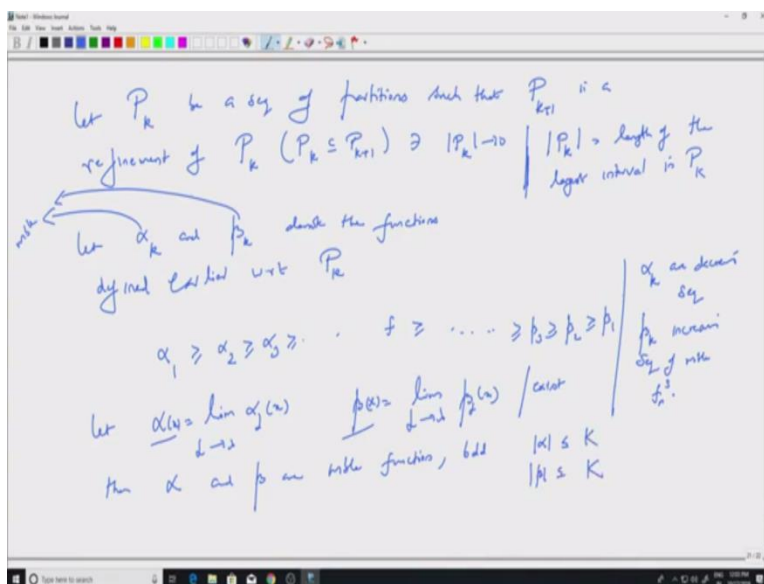 Note1 - Windows Journal
File Edit View Insert Actions Tools Help
Let P_k be a seq of partitions such that P_{k+1} is a
refinement of P_k (P_k ⊆ P_{k+1}) ∋ |P_k| → 0 | |P_k| = length of the
largest interval in P_k
mble
Let α_k and β_k denote the functions
defined earlier wrt P_k
α_1 ≥ α_2 ≥ α_3 ≥ . . f ≥ ..... ≥ β_3 ≥ β_2 ≥ β_1
α_k an decreasi
seq
β_k increasi
seq of mble
f_n^s.
Let α(x) = lim α_j(x) β(x) = lim β_j(x) / exist
j → ∞ j → ∞
then α and β are mble function, bdd |α| ≤ K
|β| ≤ K
21 / 22
Type here to search